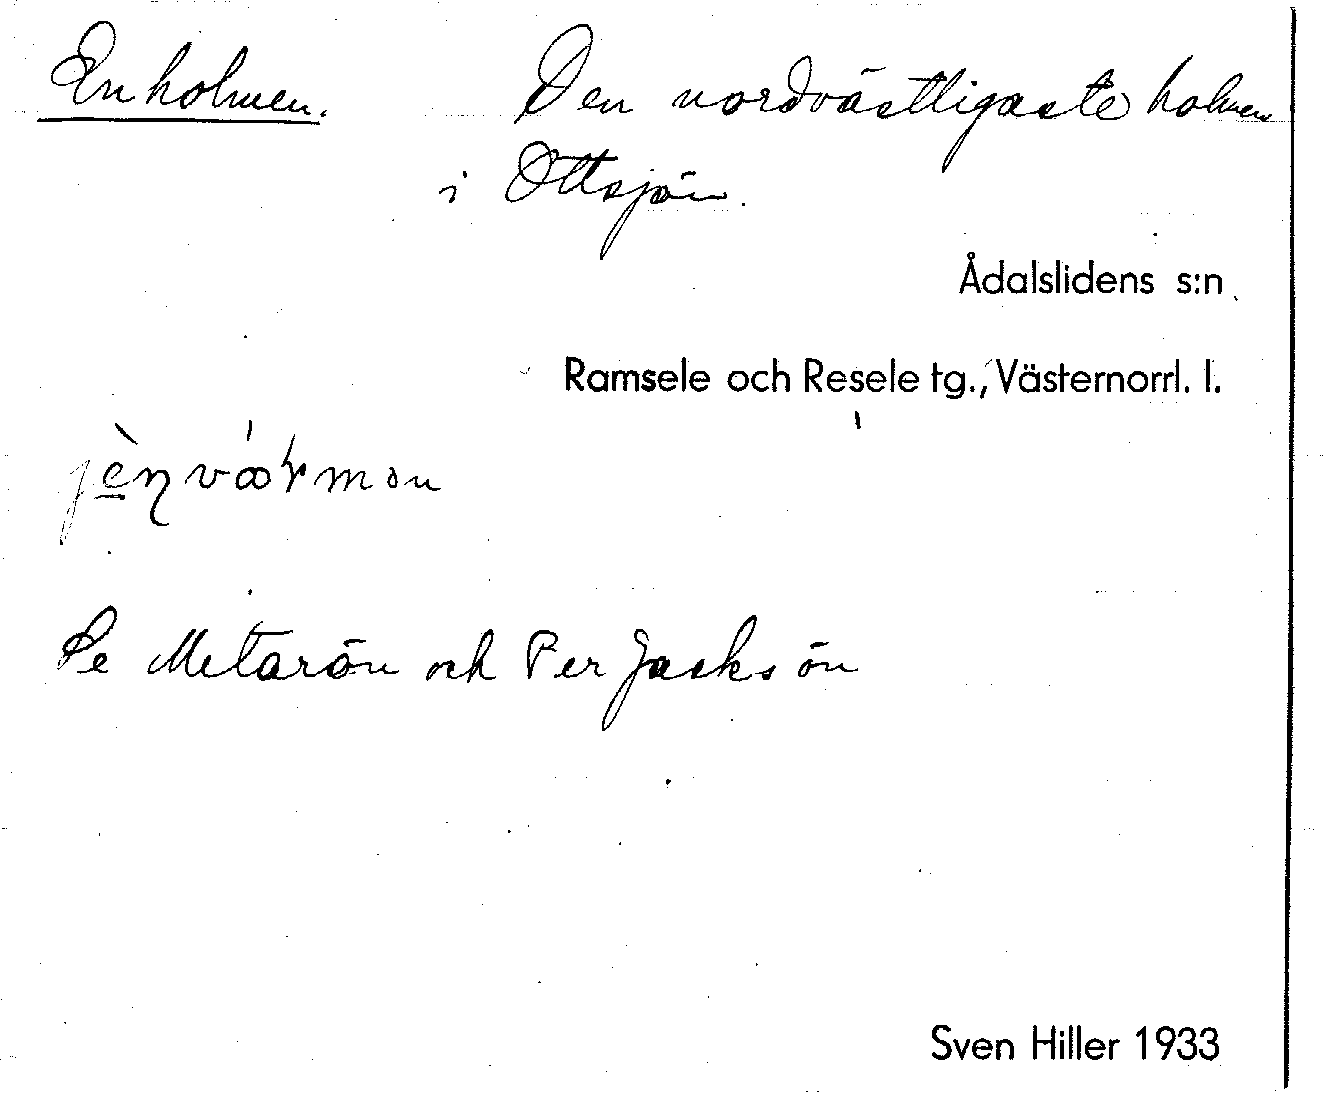 Enholmen. Den nordvästligaste holmen
i Ottsjön.
Ådalslidens s:n
Ramsele och Resele tg., Västernorrl. l.
Se Metarön och Per Jacks ön
Sven Hiller 1933